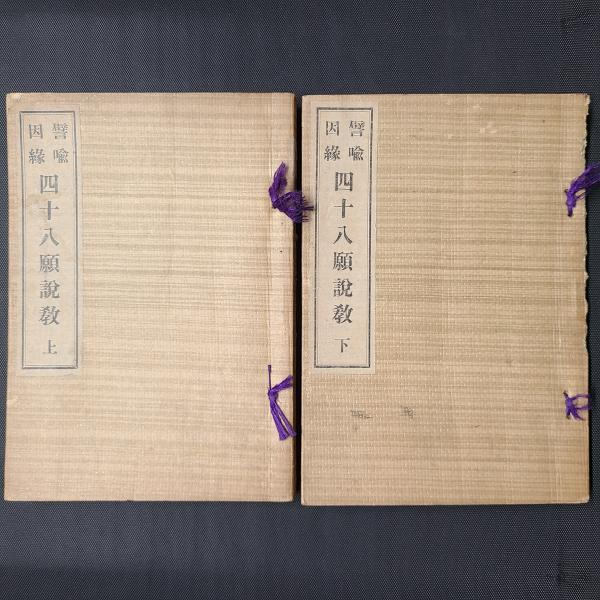 譬喩
因緣
四十八願說敎 上
譬喩
因緣
四十八願說敎 下